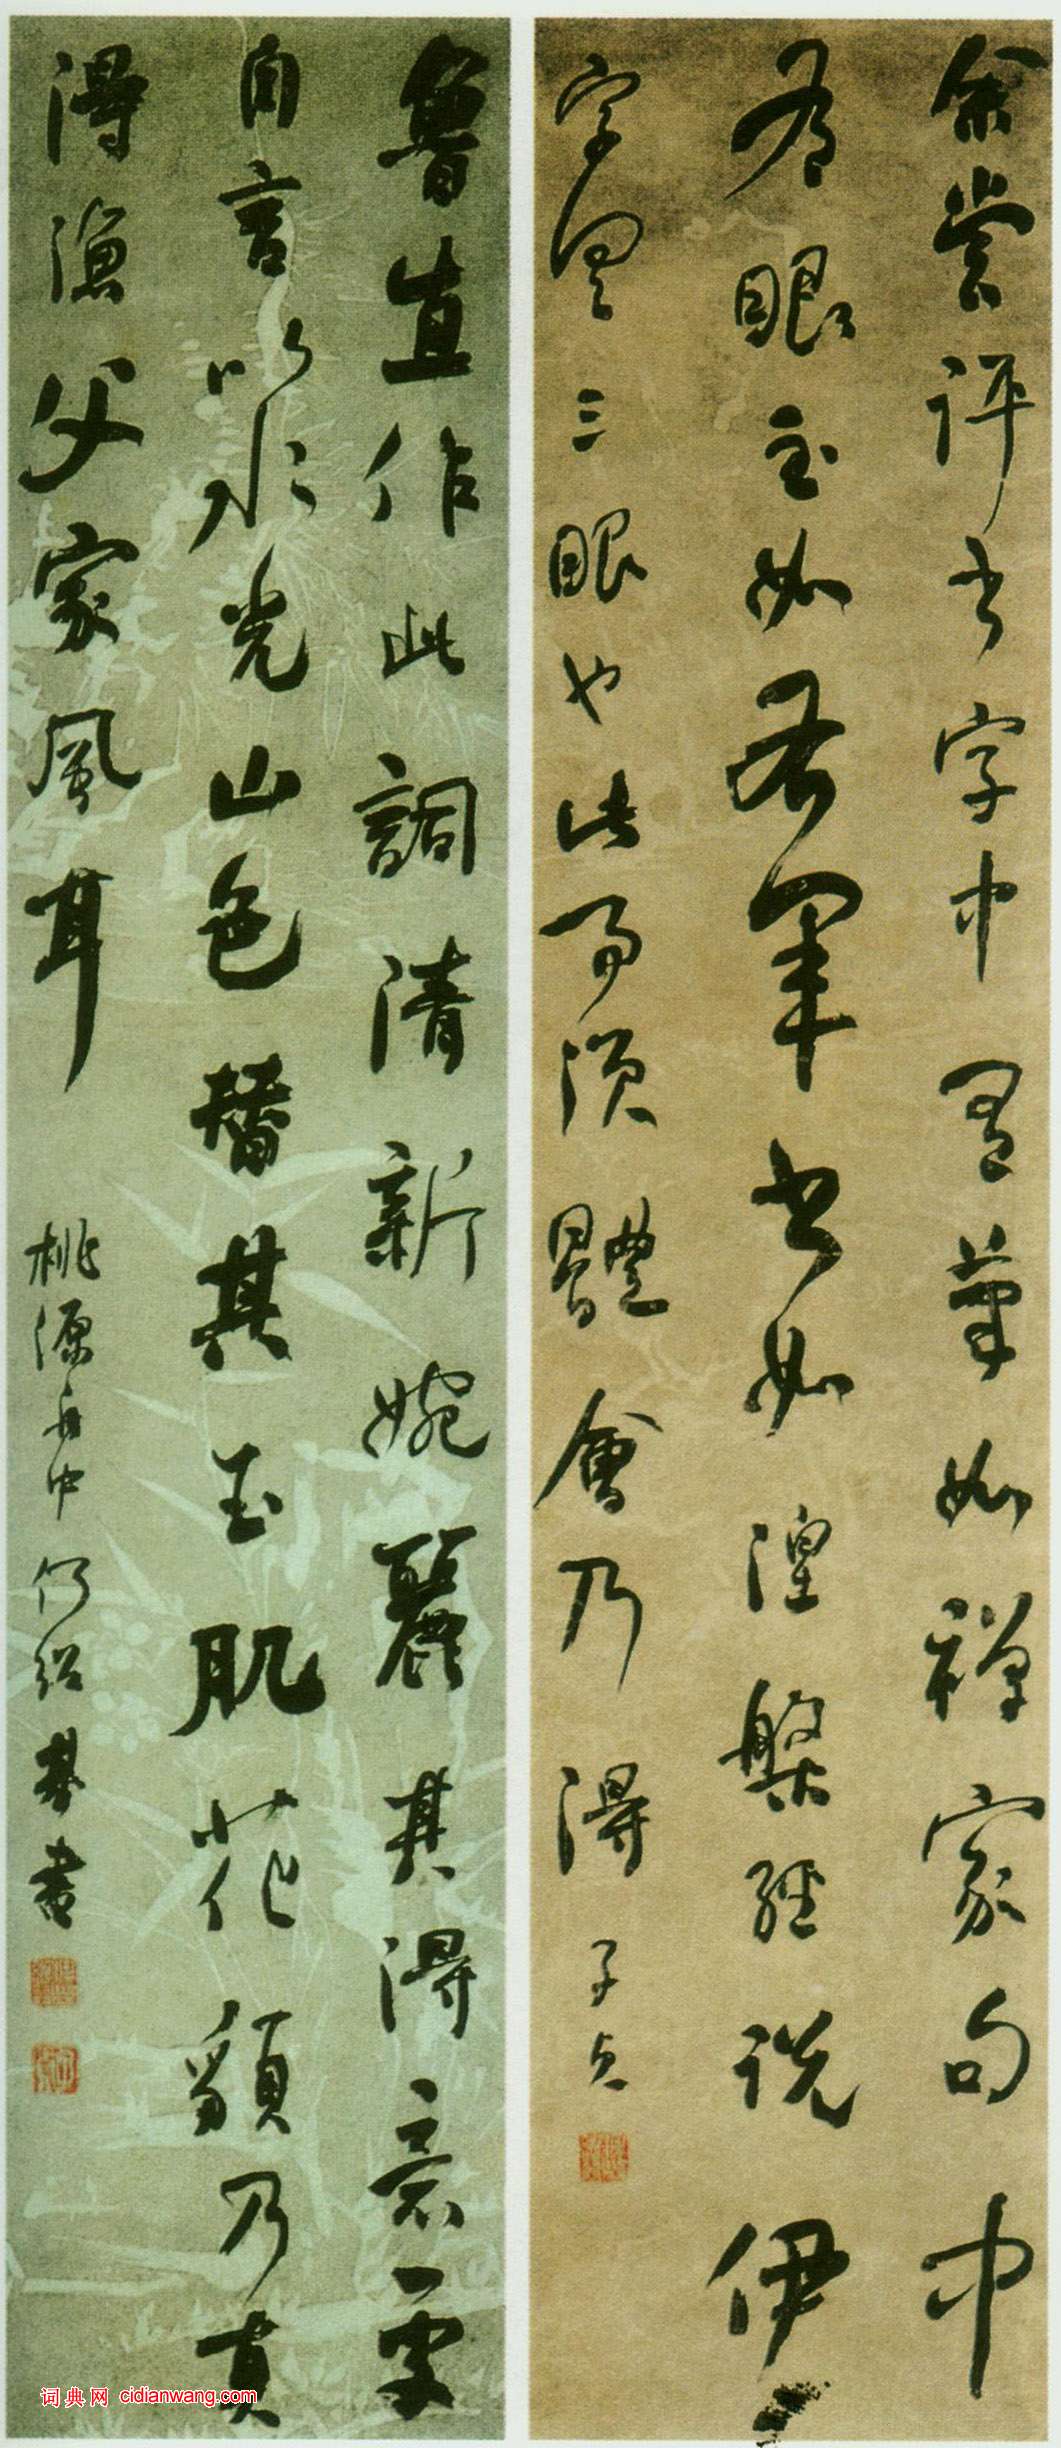 余嘗評書字中有筆如禪家句中
有眼至如右軍書如涅槃經說伊
字具三眼也此事須體會乃得 子貞
魯直作此詞清新婉麗其得意處
自言以水光山色替其玉肌花貌乃真
得漁父家風耳 桃源舟中 何紹基書
词典网 cidianwang.com